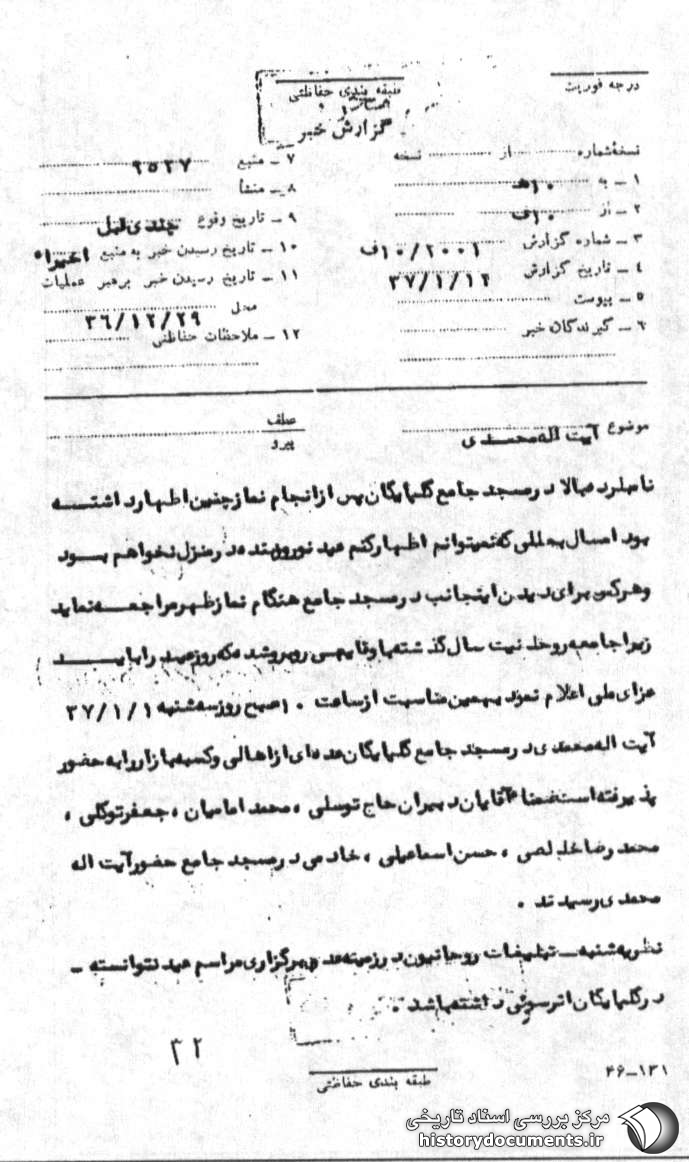 درجه فوریت
طبقه بندی حفاظتی
گزارش خبر
نسخهٔ شماره ........ از ........ نسخه
۱ ـ به ۱۰ هـ
۲ ـ از ۱۰ ف
۳ ـ شماره گزارش ۱۰/۲۰۰۱ ف
۴ ـ تاریخ گزارش ۳۷/۱/۱۲
۵ ـ پیوست
۶ ـ گیرندگان خبر
۷ ـ منبع ۹۵۳۷
۸ ـ منشأ
۹ ـ تاریخ وقوع چندی قبل
۱۰ ـ تاریخ رسیدن خبر به منبع اخیرا"
۱۱ ـ تاریخ رسیدن خبر برهبر عملیات
محلی ۳۶/۱۲/۲۹
۱۲ ـ ملاحظات حفاظتی
موضوع آیت اله محمدی
عطف
پیرو
نامبرده بالا در مسجد جامع گلپایگان پس از انجام نماز چنین اظهار داشتـــه
بود امسال بعللی که نمیتوانم اظهار کنم عید نوروز بنده در منزل نخواهم بـود
و هرکس برای دیدن اینجانب در مسجد جامع هنگام نماز ظهر مراجعـه نماید
زیرا جامعه روحانیت سال گذشته با وقایعی روبرو شده که روز عید را بایـــد
عزای ملی اعلام نمود بهمین مناسبت از ساعت ۱۰ صبح روز سه شنبه ۳۷/۱/۱
آیت اله محمدی در مسجد جامع گلپایگان عده ای از اهالی و کسبه بازار را به حضور
پذیرفته است ضمنا" آقایان دبیران حاج توسلی ، محمد امامیان ، جعفر توکلی ،
محمد رضا خالصی ، حسن اسماعیلی ، خادمی در مسجد جامع حضور آیت اله
محمدی رسیدند .
نظریه شنبه ـ تبلیغات روحانیون در زمینه عدم برگزاری مراسم عید نتوانسته ـ
در گلپایگان اثر سوئی داشته باشد .
۳۲
۴۶-۱۳۱
طبقه بندی حفاظتی
مرکز بررسی اسناد تاریخی
historydocuments.ir